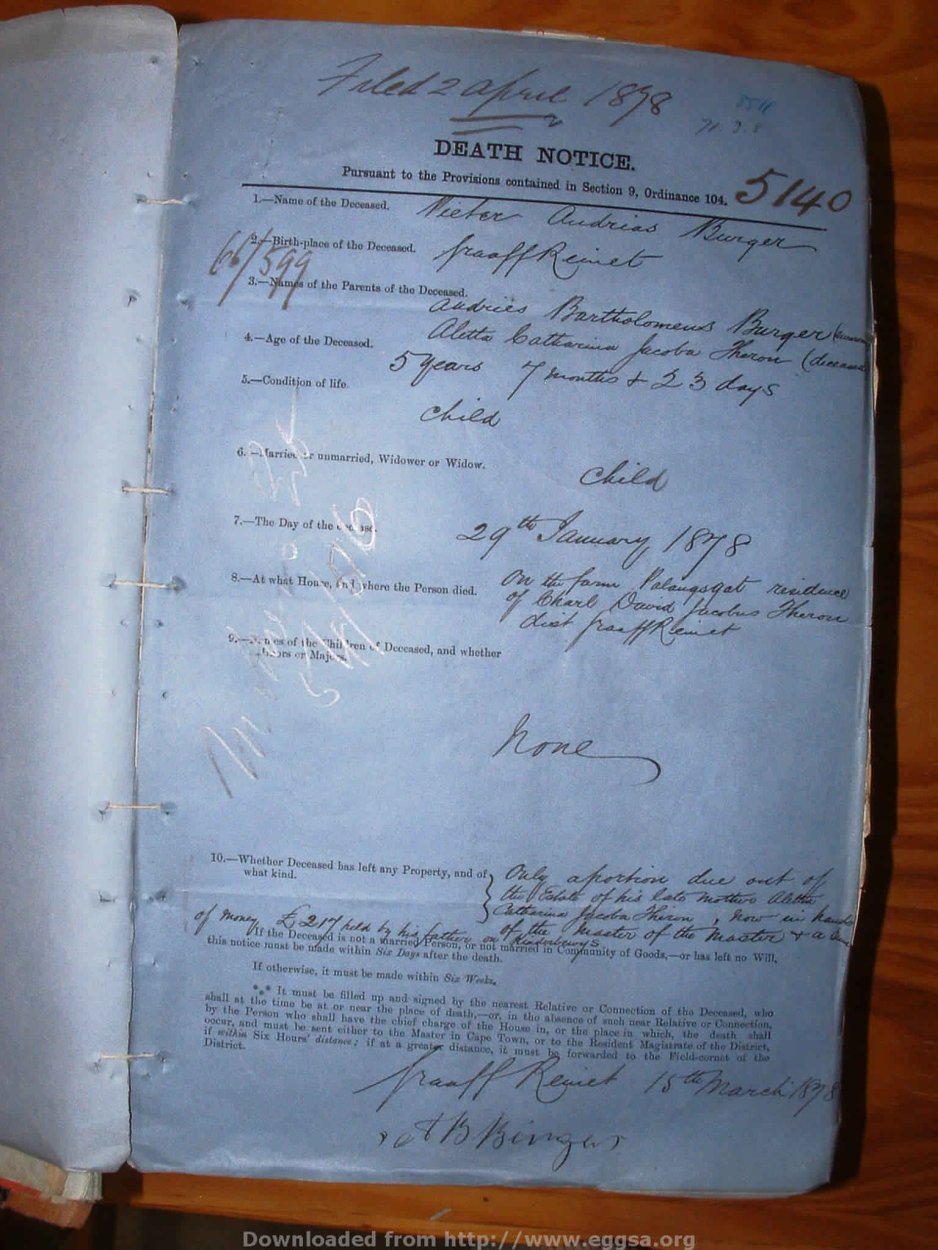 Filed 2 april 1878
DEATH NOTICE.
Pursuant to the Provisions contained in Section 9, Ordinance 104.
5140
1.—Name of the Deceased. Pieter Andrias Burger
2.—Birth-place of the Deceased. Graaff Reinet
66/599
3.—Names of the Parents of the Deceased.
Andries Bartholomeus Burger
Aletta Catharina Jacoba Theron
4.—Age of the Deceased.
5 years 7 months & 23 days
5.—Condition of life
Child
6.—Married or unmarried, Widower or Widow.
Child
7.—The Day of the
29th January 1878
8.—At what House, and where the Person died. On the farm residence
of Charl David Jacobus Theron
dist Graaff Reinet
9.—Names of the Children of Deceased, and whether
Minors or Majors.
None
10.—Whether Deceased has left any Property, and of
what kind.
Only a portion due out of
the Estate of his late mother Aletta
Catharina Jacoba Theron, now in hands
of the Master of the Master & a
of money £217 held by his father on Kinderbewys
If the Deceased is not a married Person, or not married in Community of Goods,—or has left no Will,
this notice must be made within Six Days after the death.
If otherwise, it must be made within Six Weeks.
*** It must be filled up and signed by the nearest Relative or Connection of the Deceased, who
shall at the time be at or near the place of death,—or, in the absence of such near Relative or Connection,
by the Person who shall have the chief charge of the House in, or the place in which, the death shall
occur, and must be sent either to the Master in Cape Town, or to the Resident Magistrate of the District,
if within Six Hours' distance; if at a greater distance, it must be forwarded to the Field-cornet of the
District.
Graaff Reinet 15th March 1878
Downloaded from http://www.eggsa.org